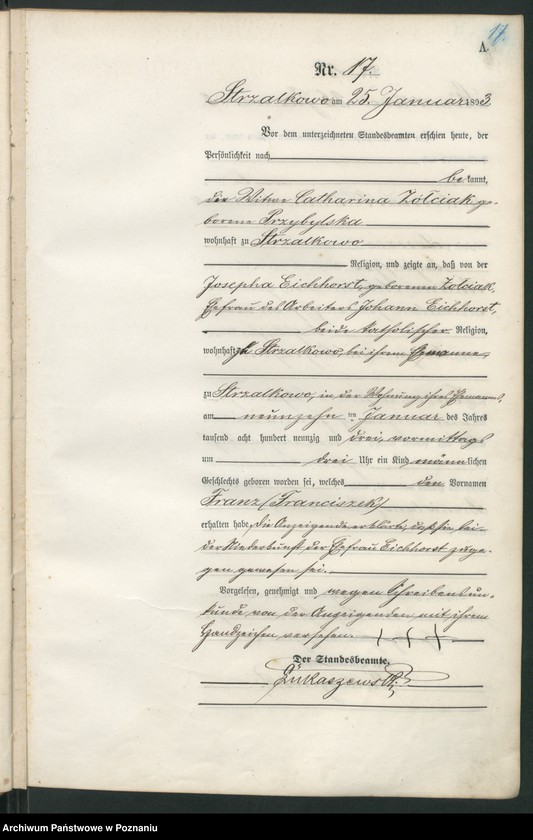 17.
A.
Nr. 17.
Strzalkowo am 25. Januar 1893
Vor dem unterzeichneten Standesbeamten erschien heute, der
Persönlichkeit nach
be kannt,
die Witwe Catharina Zolciak ge-
borene Przybylska
wohnhaft zu Strzalkowo
Religion, und zeigte an, daß von der
Josepha Eichhorst, geborenen Zolciak,
Ehefrau des Arbeiters Johann Eichhorst,
beide katholischer Religion,
wohnhaft zu Strzalkowo, bei ihrem Ehemanne
zu Strzalkowo, in der Wohnung ihres Ehemannes,
am neunzehn ten Januar des Jahres
tausend acht hundert neunzig und drei, vormittags
um drei Uhr ein Kind männlichen
Geschlechts geboren worden sei, welches den Vornamen
Franz (Franciszek)
erhalten habe, die Anzeigende erklärte, daß sie bei
der Niederkunft der Ehefrau Eichhorst zuge-
gen gewesen sei.
Vorgelesen, genehmigt und wegen Schreibensun-
kunde von der Anzeigenden mit ihrem
Handzeichen versehen. + + +
Der Standesbeamte.
Lukaszewski
Archiwum Państwowe w Poznaniu